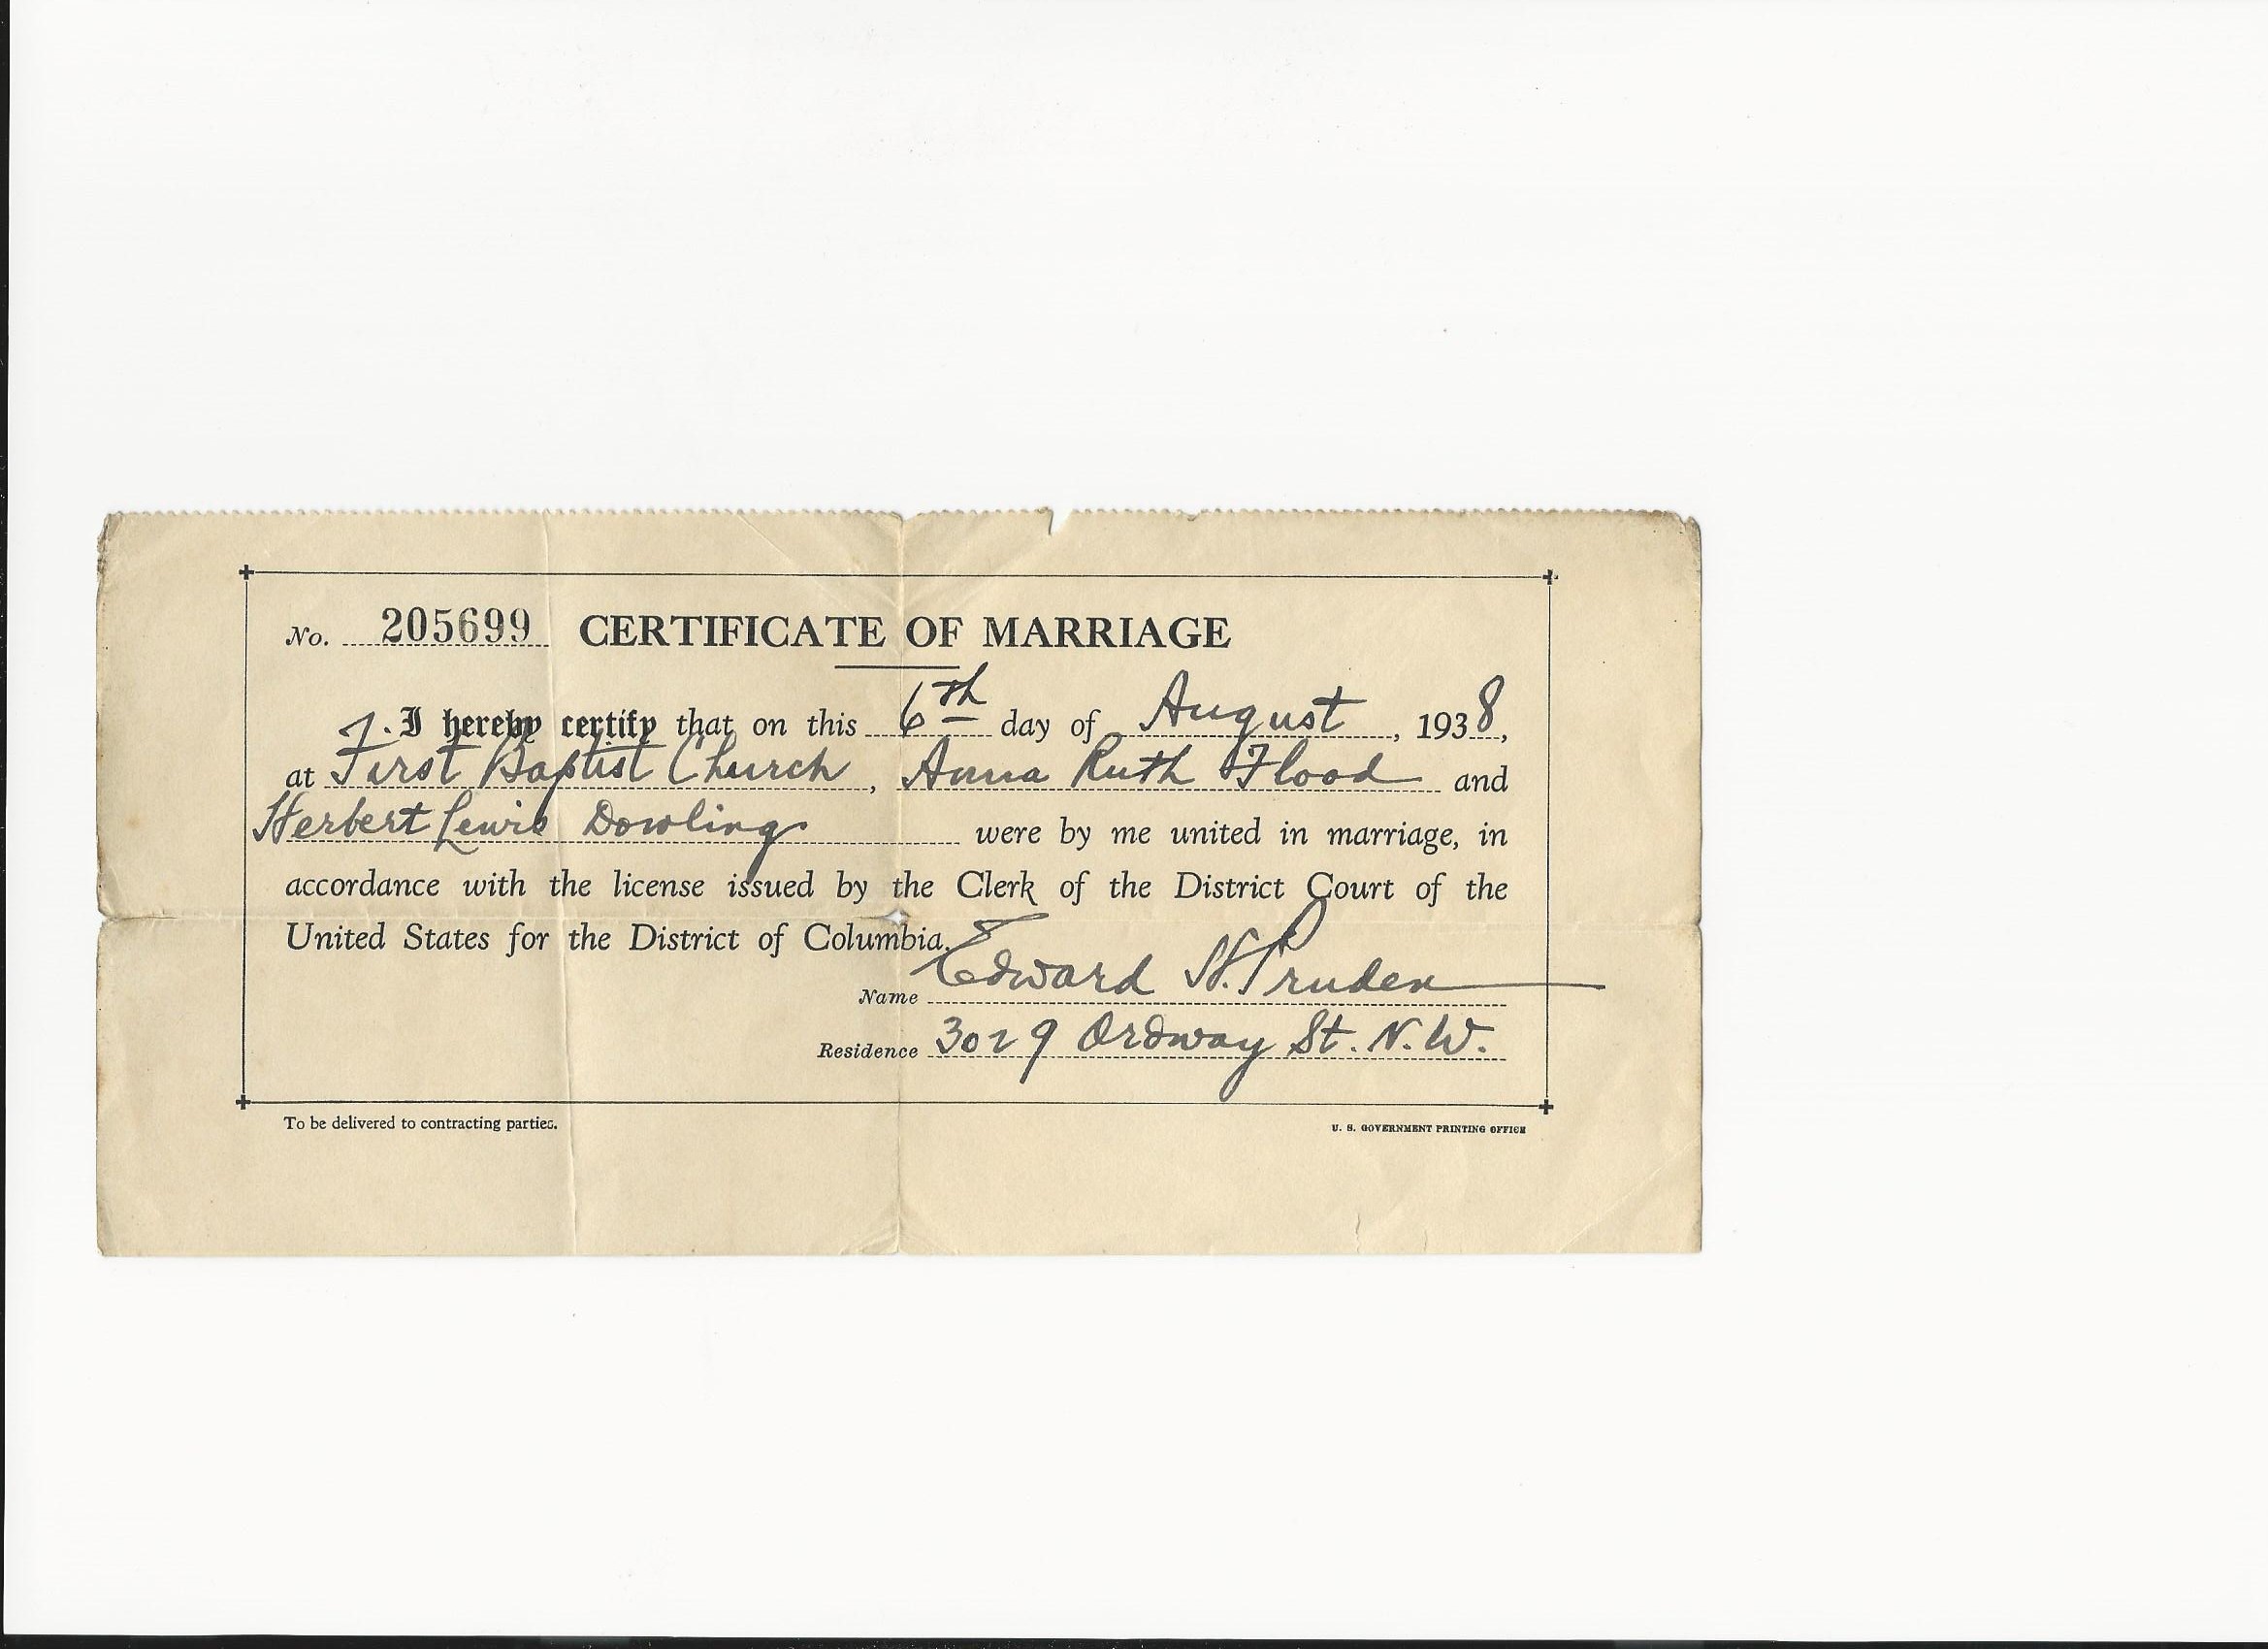 No. 205699 CERTIFICATE OF MARRIAGE
I hereby certify that on this 6th day of August, 1938,
at First Baptist Church, Anna Ruth Flood and
Herbert Lewis Dowling were by me united in marriage, in
accordance with the license issued by the Clerk of the District Court of the
United States for the District of Columbia.
Name Edward H. Pruden
Residence 3029 Ordway St. N.W.
To be delivered to contracting parties.
U. S. GOVERNMENT PRINTING OFFICE